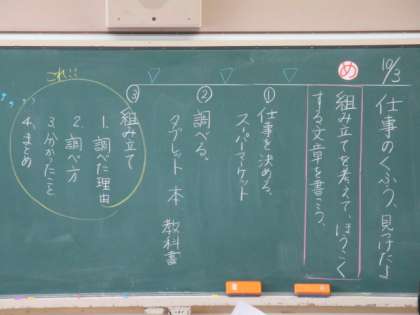 10/3
仕事のくふう、見つけたよ
め
組み立てを考えて、ほうこく
する文章を書こう。
①仕事を決める。
スーパーマーケット
②調べる。
タブレット 本 教科書
③組み立て
1. 調べた理由
2. 調べ方
3. 分かったこと
4. まとめ
これ!!